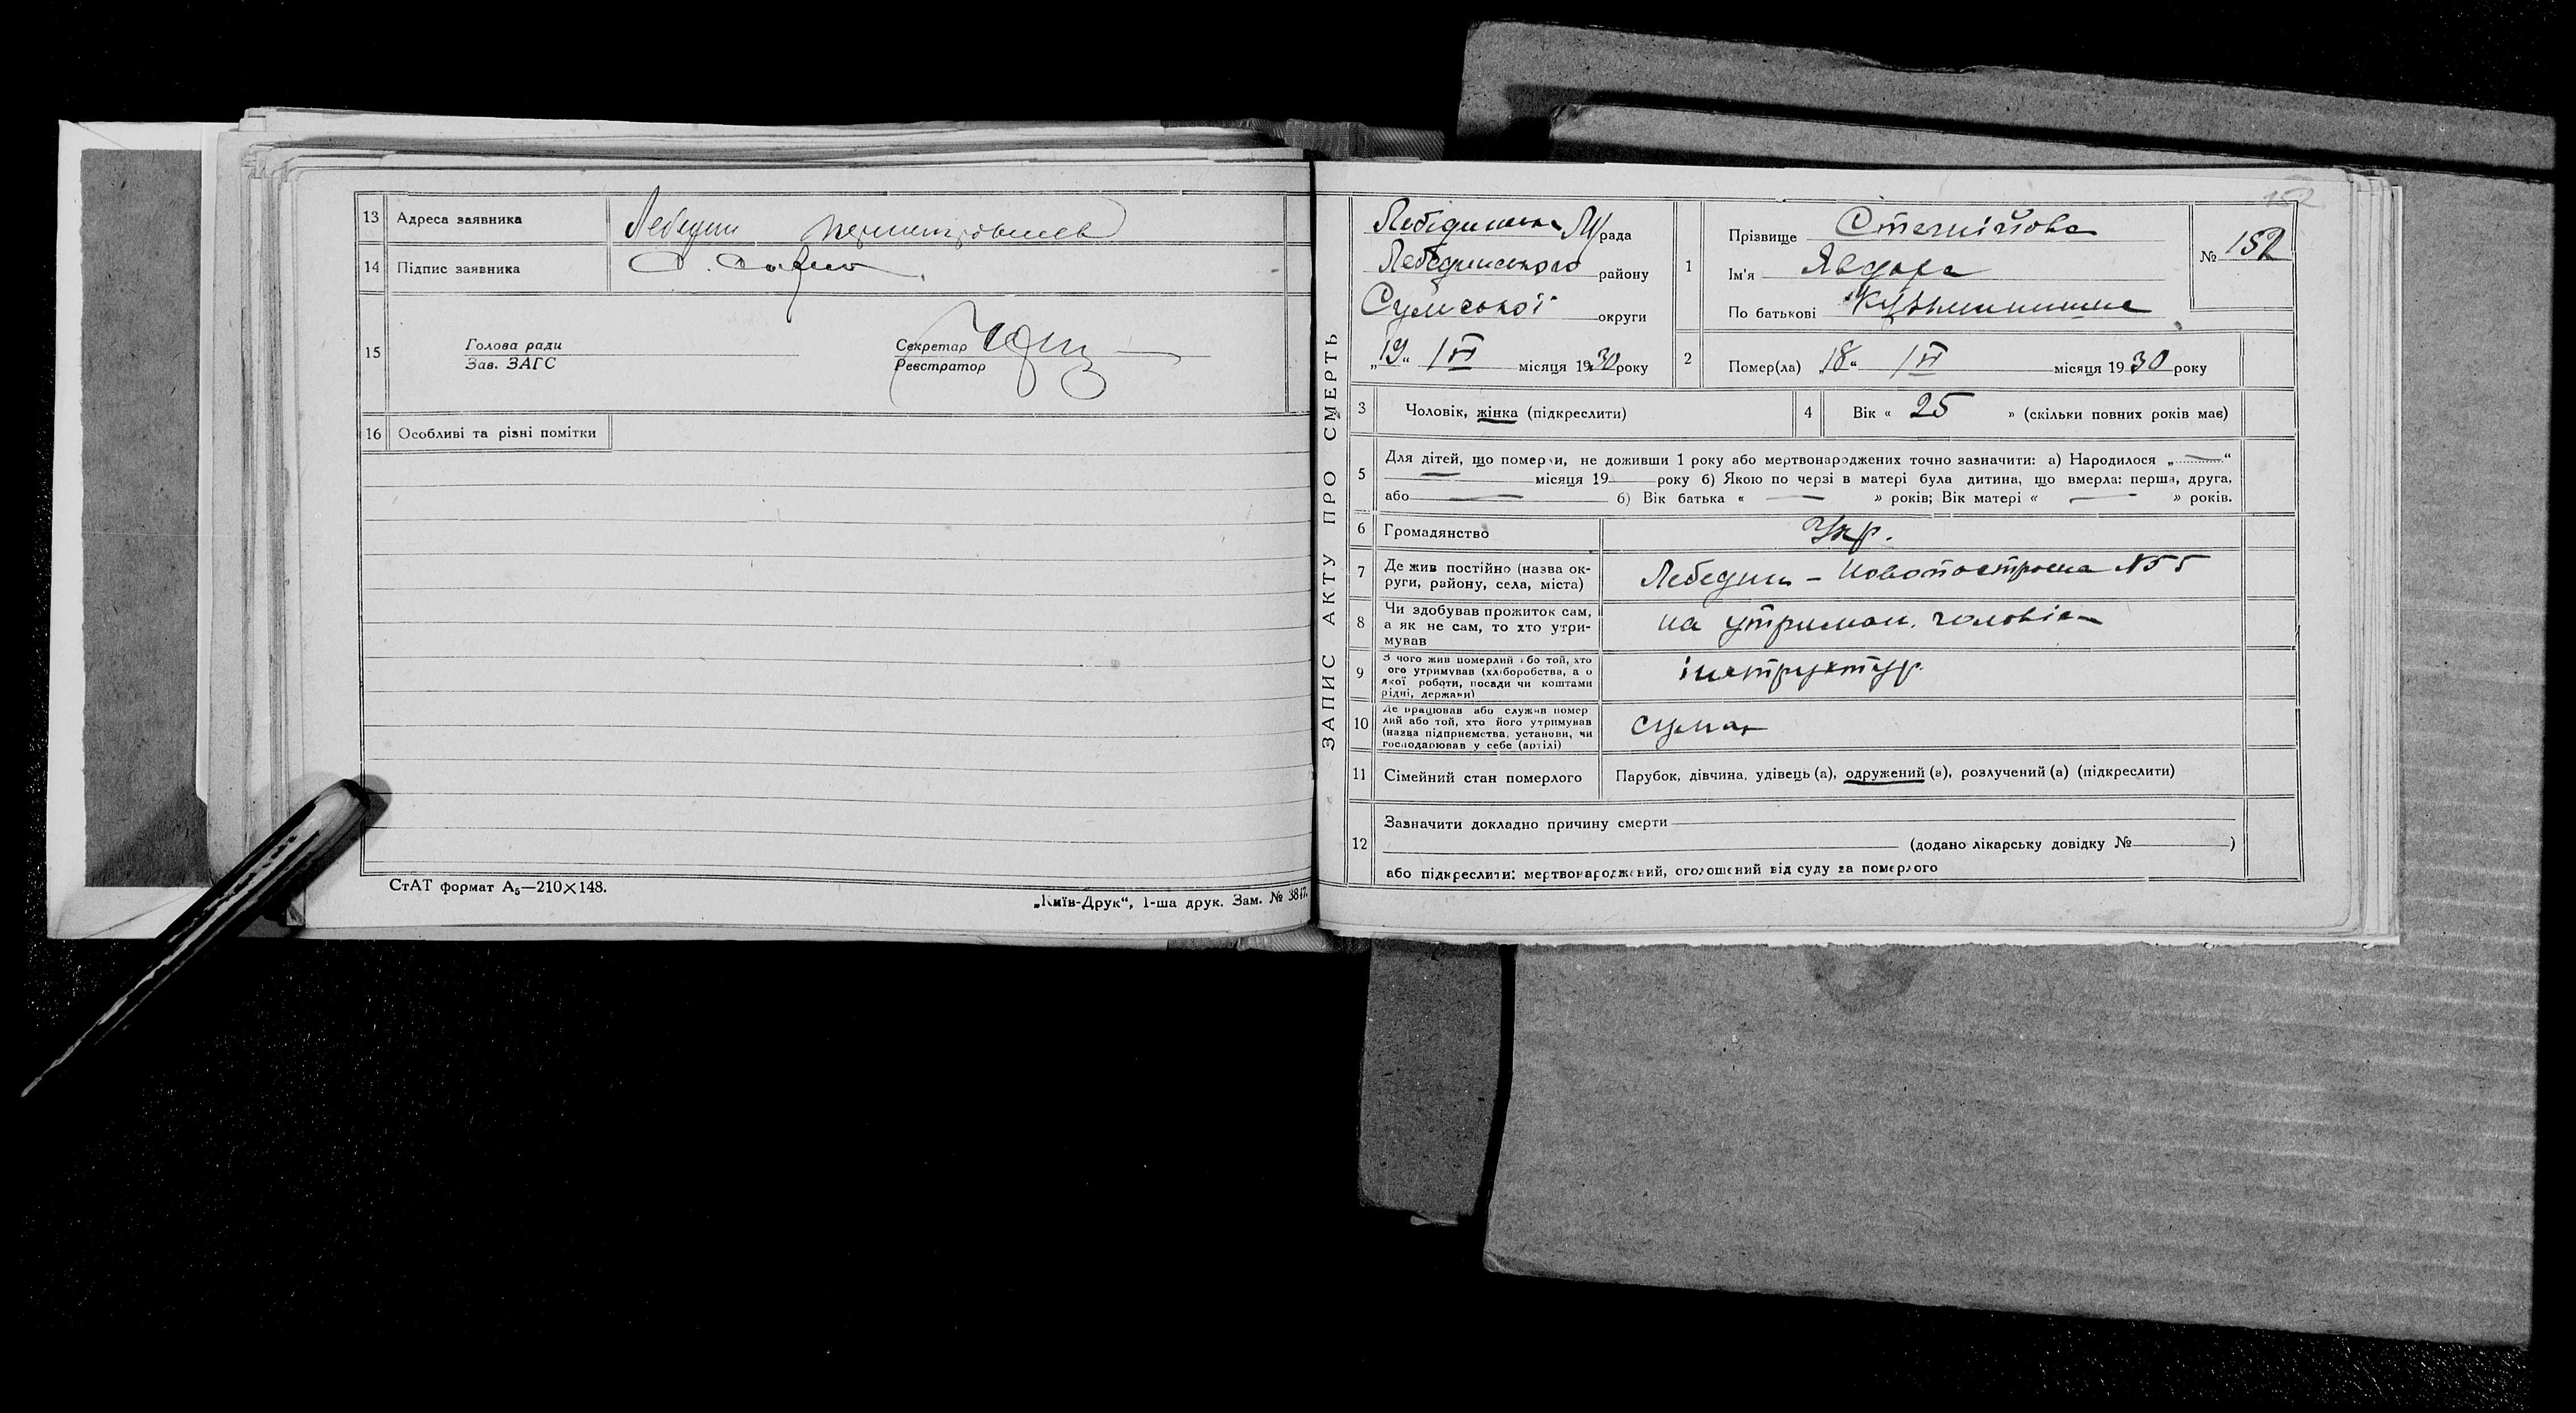 13 Адреса заявника Лебедин
14 Підпис заявника
15 Голова ради
Зав. ЗАГС
Секретар
Реєстратор
16 Особливі та різні помітки
СтАТ формат А5—210×148.
„Київ-Друк“, 1-ша друк. Зам. № 3847.
ЗАПИС АКТУ ПРО СМЕРТЬ
Лебединська М/рада
Лебединського району
Сумської округи
„19“ IVI місяця 1930 року
152
1 Прізвище
Ім'я Явдоха
По батькові
№ 152
2 Помер(ла) „18“ IVI місяця 1930 року
3 Чоловік, жінка (підкреслити)
4 Вік « 25 » (скільки повних років має)
5 Для дітей, що померли, не доживши 1 року або мертвонароджених точно зазначити: а) Народилося „—“
— місяця 19— року б) Якою по черзі в матері була дитина, що вмерла: перша, друга,
або — б) Вік батька « — » років; Вік матері « — » років.
6 Громадянство Укр.
7 Де жив постійно (назва ок-
руги, району, села, міста)
Лебедин – Новопостроена №55
8 Чи здобував прожиток сам,
а як не сам, то хто утри-
мував
на утриман. чоловіка
9 З чого жив померлий або той, хто
ого утримував (хліборобства, а о
якої роботи, посади чи коштами
рідні, держави)
інструктур
10 Де працював або служив помер
лий або той, хто його утримував
(назва підприємства, установи, чи
господарював у себе (артілі)
11 Сімейний стан померлого Парубок, дівчина, удівець (а), одружений (а), розлучений (а) (підкреслити)
12 Зазначити докладно причину смерти
(додано лікарську довідку № )
або підкреслити: мертвонароджений, оголошений від суду за померлого